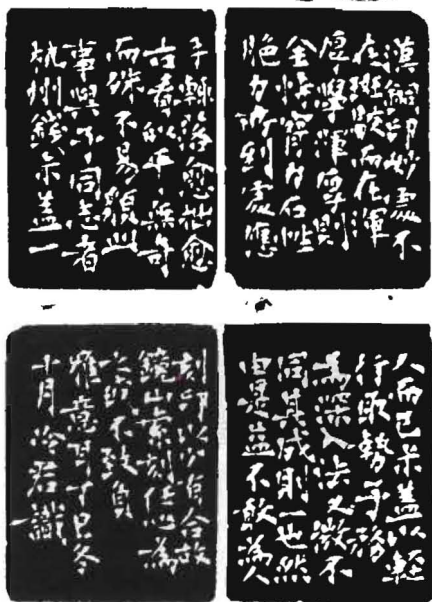 漢銅印妙處不
在斑駁而在渾
厚學渾厚則
全恃腕力石性
脆力所到處應
手輒落愈拙愈
古看似平平無奇
而殊不易貌此
事與予同志者
杭州錢尗蓋一
人而已尗蓋以輕
行取勢予務
為深入法又微不
同其成則一也然
由是益不敢為人
刻印以少有合故
鏡山索刻任心為
之不敢負
雅意耳丁巳冬
十月冷君識